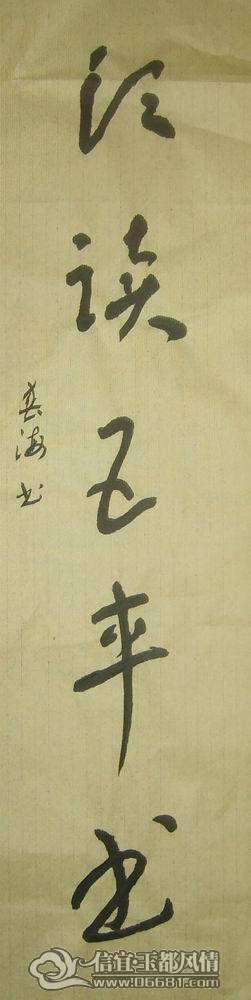 须读五车书
英海书
信宜玉都风情
www.06681.com